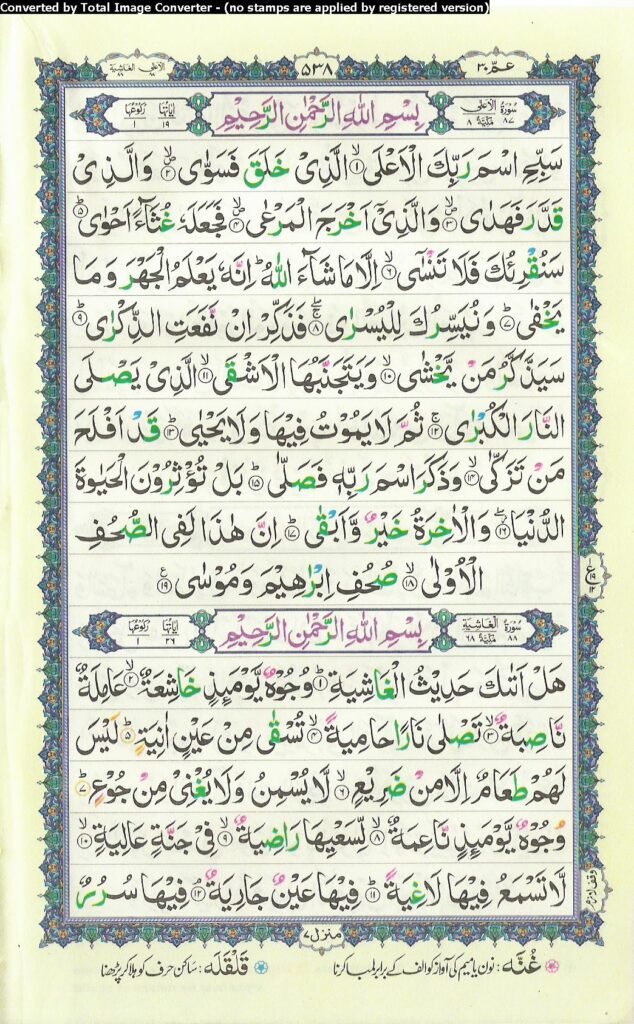 Converted by Total Image Converter - (no stamps are applied by registered version)
عمّ ٣٠
٥٣٨
الاعلى الغاشية
سورة الاعلى مكية ٨٧ ٨
بِسْمِ اللهِ الرَّحْمٰنِ الرَّحِيْمِ
اياتها ١٩ ركوعها ١
سَبِّحِ اسْمَ رَبِّكَ الْاَعْلَى ﴿١﴾ الَّذِىْ خَلَقَ فَسَوّٰى ﴿٢﴾ وَالَّذِىْ
قَدَّرَ فَهَدٰى ﴿٣﴾ وَالَّذِىْٓ اَخْرَجَ الْمَرْعٰى ﴿٤﴾ فَجَعَلَهٗ غُثَآءً اَحْوٰى ﴿٥﴾
سَنُقْرِئُكَ فَلَا تَنْسٰٓى ﴿٦﴾ اِلَّا مَا شَآءَ اللّٰهُ اِنَّهٗ يَعْلَمُ الْجَهْرَ وَمَا
يَخْفٰى ﴿٧﴾ وَنُيَسِّرُكَ لِلْيُسْرٰى ﴿٨﴾ فَذَكِّرْ اِنْ نَّفَعَتِ الذِّكْرٰى ﴿٩﴾
سَيَذَّكَّرُ مَنْ يَّخْشٰى ﴿١٠﴾ وَيَتَجَنَّبُهَا الْاَشْقَى ﴿١١﴾ الَّذِىْ يَصْلَى
النَّارَ الْكُبْرٰى ﴿١٢﴾ ثُمَّ لَا يَمُوْتُ فِيْهَا وَلَا يَحْيٰى ﴿١٣﴾ قَدْ اَفْلَحَ
مَنْ تَزَكّٰى ﴿١٤﴾ وَذَكَرَ اسْمَ رَبِّهٖ فَصَلّٰى ﴿١٥﴾ بَلْ تُؤْثِرُوْنَ الْحَيٰوةَ
الدُّنْيَا ﴿١٦﴾ وَالْاٰخِرَةُ خَيْرٌ وَّاَبْقٰى ﴿١٧﴾ اِنَّ هٰذَا لَفِى الصُّحُفِ
الْاُوْلٰى ﴿١٨﴾ صُحُفِ اِبْرٰهِيْمَ وَمُوْسٰى ﴿١٩﴾
سورة الغاشية مكية ٨٨ ٦٨
بِسْمِ اللهِ الرَّحْمٰنِ الرَّحِيْمِ
اياتها ٢٦ ركوعها ١
هَلْ اَتٰىكَ حَدِيْثُ الْغَاشِيَةِ ﴿١﴾ وُجُوْهٌ يَّوْمَئِذٍ خَاشِعَةٌ ﴿٢﴾ عَامِلَةٌ
نَّاصِبَةٌ ﴿٣﴾ تَصْلٰى نَارًا حَامِيَةً ﴿٤﴾ تُسْقٰى مِنْ عَيْنٍ اٰنِيَةٍ ﴿٥﴾ لَيْسَ
لَهُمْ طَعَامٌ اِلَّا مِنْ ضَرِيْعٍ ﴿٦﴾ لَّا يُسْمِنُ وَلَا يُغْنِىْ مِنْ جُوْعٍ ﴿٧﴾
وُجُوْهٌ يَّوْمَئِذٍ نَّاعِمَةٌ ﴿٨﴾ لِّسَعْيِهَا رَاضِيَةٌ ﴿٩﴾ فِىْ جَنَّةٍ عَالِيَةٍ ﴿١٠﴾
لَّا تَسْمَعُ فِيْهَا لَاغِيَةً ﴿١١﴾ فِيْهَا عَيْنٌ جَارِيَةٌ ﴿١٢﴾ فِيْهَا سُرُرٌ
منزل ٧
غُنّه: نون یا میم کی آواز کو الف کے برابر لمبا کرنا
قَلْقَلَه: ساکن حرف کو ہلا کر پڑھنا